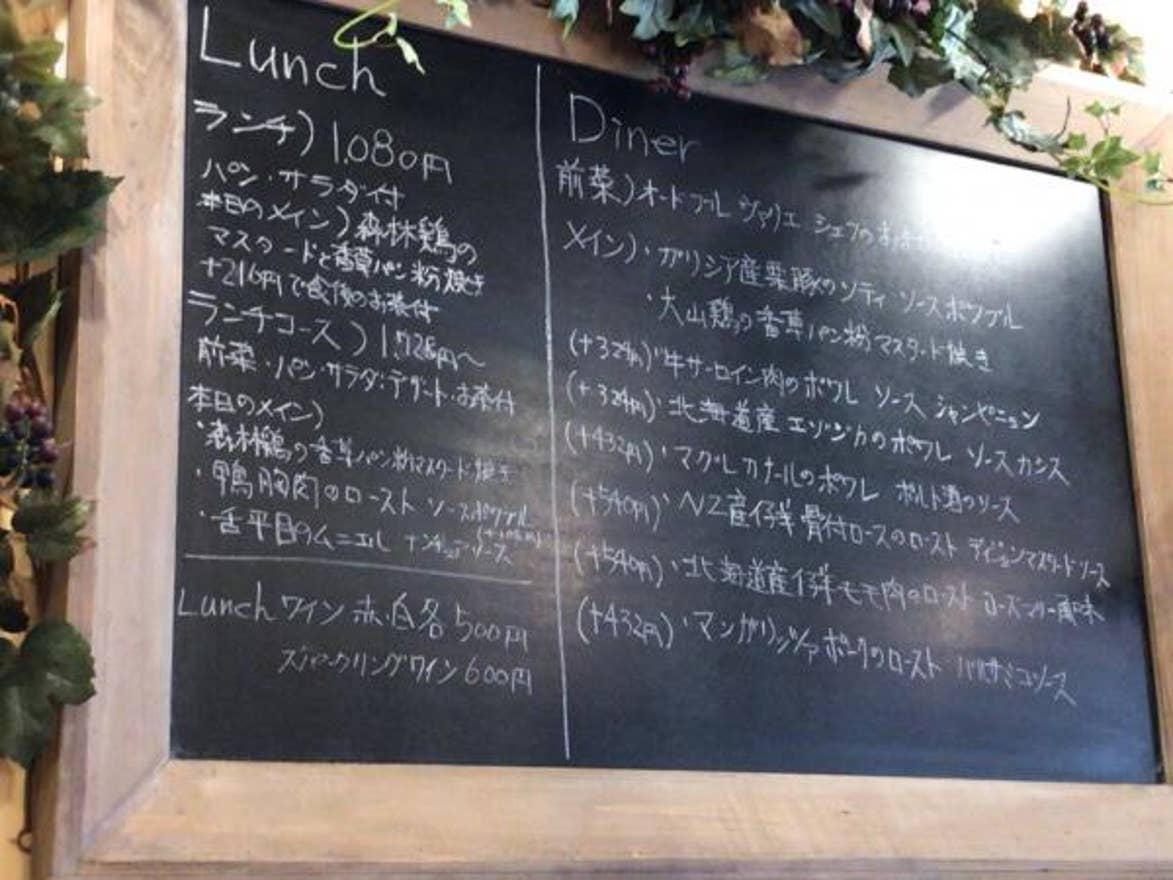 Lunch
ランチ) 1.080円
パン・サラダ付
本日のメイン) 森林鶏の
マスタードと香草パン粉焼き
+216円で食後のお茶付
ランチコース) 1.728円〜
前菜・パン・サラダ・デザート・お茶付
本日のメイン)
・森林鶏の香草パン粉マスタード焼き
・鴨胸肉のロースト ソースポワブル
・舌平目のムニエル ナンチュアソース
Lunch ワイン 赤・白各 500円
スパークリングワイン 600円
Diner
前菜) オードブル ヴァリエ シェフのおまかせ
メイン)・ガリシア産栗豚のソティ ソースポワブル
・大山鶏の香草パン粉マスタード焼き
(+324円)・牛サーロイン肉のポワレ ソース シャンピニョン
(+324円)・北海道産 エゾジカのポワレ ソースカシス
(+432円)・マグレカナールのポワレ ポルト酒のソース
(+540円)・NZ産仔羊 骨付ロースのロースト ディジョンマスタードソース
(+540円)・北海道産仔羊モモ肉のロースト ローズマリー風味
(+432円)・マンガリッツァポークのロースト バルサミコソース